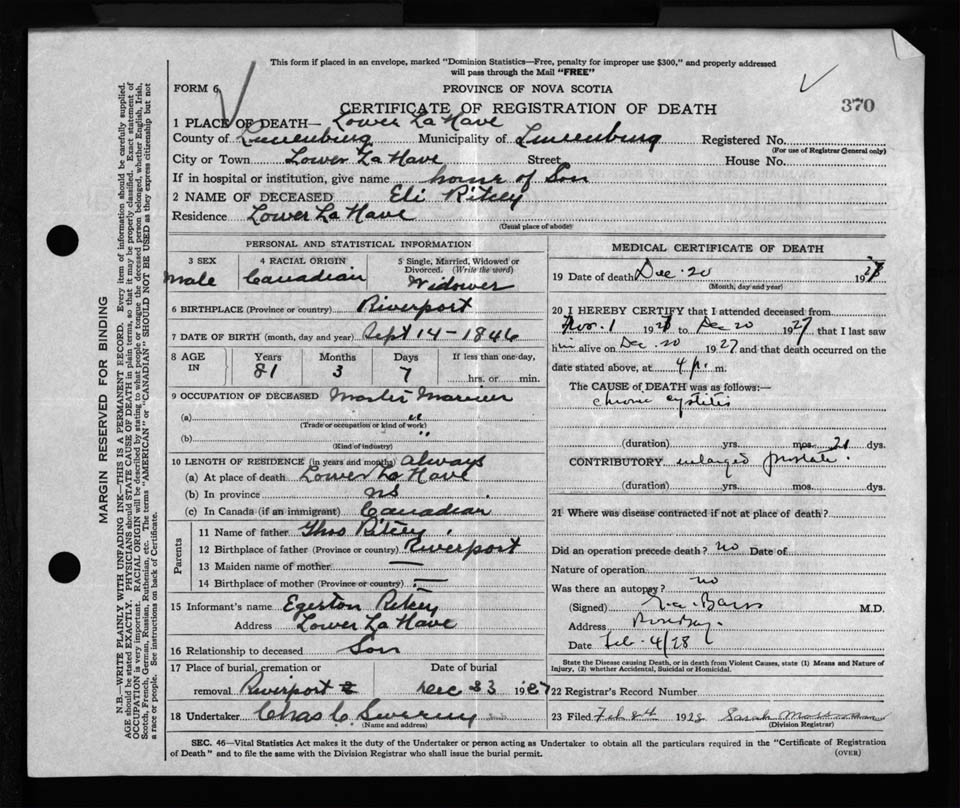 This form if placed in an envelope, marked "Dominion Statistics—Free, penalty for improper use $300," and properly addressed
will pass through the Mail "FREE"
FORM 6
PROVINCE OF NOVA SCOTIA
CERTIFICATE OF REGISTRATION OF DEATH
370
1 PLACE OF DEATH— Lower La Have
County of Lunenburg Municipality of Lunenburg Registered No.
(For use of Registrar General only)
City or Town Lower La Have Street House No.
If in hospital or institution, give name home of Son
2 NAME OF DECEASED Eli Ritcey
Residence Lower La Have
(Usual place of abode)
PERSONAL AND STATISTICAL INFORMATION
3 SEX 4 RACIAL ORIGIN 5 Single, Married, Widowed or
Divorced. (Write the word)
Male Canadian Widower
6 BIRTHPLACE (Province or country) Riverport
7 DATE OF BIRTH (month, day and year) Sept 14 - 1846
8 AGE IN Years Months Days If less than one day,
81 3 7 hrs. or min.
9 OCCUPATION OF DECEASED Master Mariner
(a) "
(Trade or occupation or kind of work)
(b) "
(Kind of industry)
10 LENGTH OF RESIDENCE (in years and months) always
(a) At place of death Lower La Have
(b) In province NS
(c) In Canada (if an immigrant) Canadian
Parents
11 Name of father Thos Ritcey
12 Birthplace of father (Province or country) Riverport
13 Maiden name of mother —
14 Birthplace of mother (Province or country) —
15 Informant's name Egerton Ritcey
Address Lower La Have
16 Relationship to deceased Son
17 Place of burial, cremation or Date of burial
removal Riverport Dec 23 1927
18 Undertaker Chas C
(Name and address)
MEDICAL CERTIFICATE OF DEATH
19 Date of death Dec. 20 192
(Month, day and year)
20 I HEREBY CERTIFY that I attended deceased from
Nov. 1 192 to Dec 20 1927, that I last saw
him alive on Dec. 20 1927 and that death occurred on the
date stated above, at 4 p. m.
The CAUSE of DEATH was as follows:—
chronic cystitis
(duration) yrs. mos. 21 dys.
CONTRIBUTORY enlarged prostate.
(duration) yrs. mos. dys.
21 Where was disease contracted if not at place of death?
Did an operation precede death? no Date of
Nature of operation
Was there an autopsy? no
(Signed) M.D.
Address
Date Feb. 4/28
State the Disease causing Death, or in death from Violent Causes, state (1) Means and Nature of
Injury, (2) whether Accidental, Suicidal or Homicidal.
22 Registrar's Record Number
23 Filed Feb 24 1928 Sarah
(Division Registrar)
SEC. 46—Vital Statistics Act makes it the duty of the Undertaker or person acting as Undertaker to obtain all the particulars required in the "Certificate of Registration
of Death" and to file the same with the Division Registrar who shall issue the burial permit. (OVER)
MARGIN RESERVED FOR BINDING
N.B.—WRITE PLAINLY WITH UNFADING INK—THIS IS A PERMANENT RECORD. Every item of information should be carefully supplied.
AGE should be stated EXACTLY. PHYSICIANS should STATE CAUSE OF DEATH in plain terms, so that it may be properly classified. Exact statement of
OCCUPATION is very important. RACIAL ORIGIN will be described by stating to what people or tongue the deceased person belonged, whether English, Irish,
Scotch, French, German, Russian, Ruthenian, etc. The terms "AMERICAN" or "CANADIAN" SHOULD NOT BE USED as they express citizenship but not
a race or people. See instructions on back of Certificate.